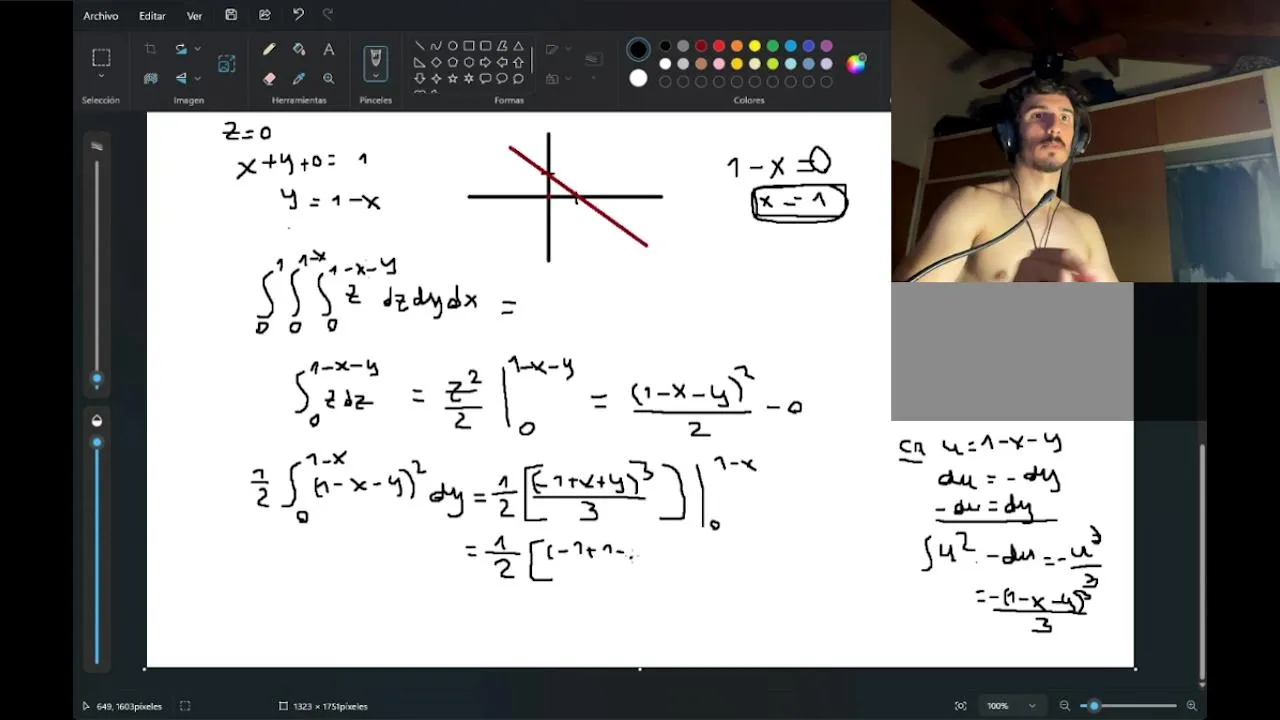 Archivo Editar Ver
Selección Imagen Herramientas Pinceles Formas Colores
z=0
x+y+0=1
y=1-x
1-x=0
x=1
∫₀¹ ∫₀^{1-x} ∫₀^{1-x-y} z dz dy dx =
∫₀^{1-x-y} z dz = z²/2 |₀^{1-x-y} = (1-x-y)²/2 - 0
1/2 ∫₀^{1-x} (1-x-y)² dy = 1/2 [(-1+x+y)³/3] |₀^{1-x}
= 1/2 [(-1+1-
CA u=1-x-y
du=-dy
-du=dy
∫u² -du = -u³/3
= -(1-x-y)³/3
649, 1603píxeles 1323 × 1751píxeles 100%